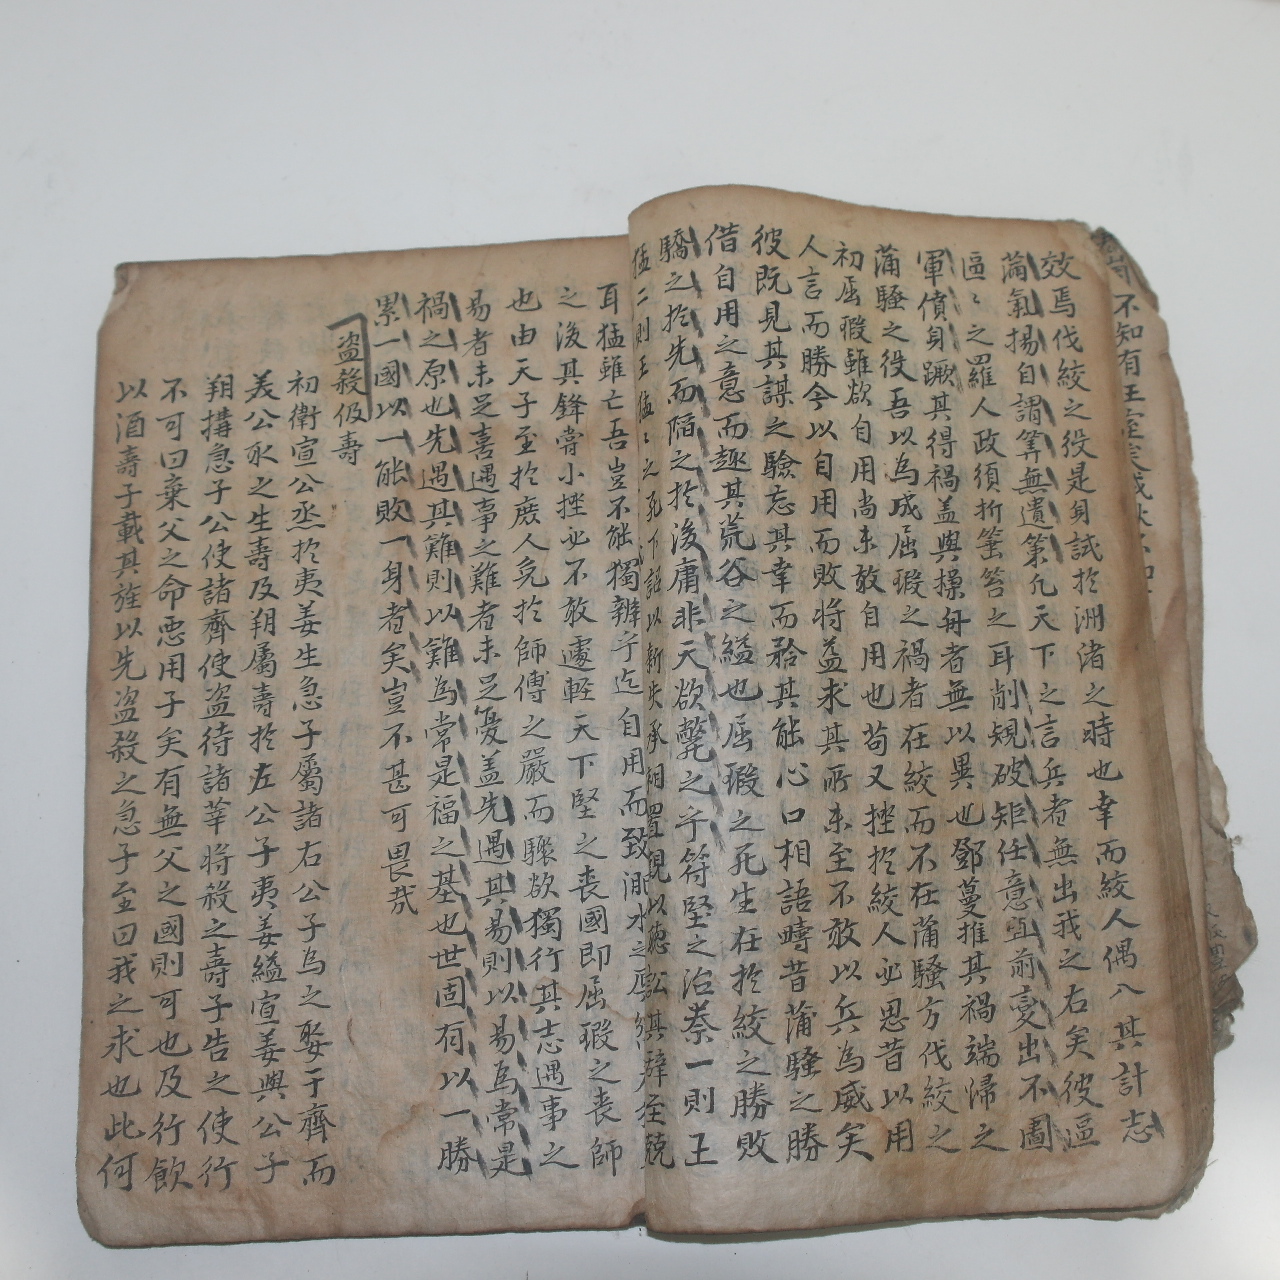 不知有王
效焉伐絞之役是身試於洲渚之時也幸而絞人偶入其計志
蒲氣揚自謂筭無遺策凡天下之言兵者無出我之右矣彼區
區〻之羅人政須折箠笞之耳削規破矩任意直前變出不圖
軍僨身蹶其得禍盖與操舟者無以異也鄧蔓推其禍端歸之
蒲騷之役吾以為成屈瑕之禍者在絞而不在蒲騷方伐絞之
初屈瑕雖欲自用尚未敢自用也苟又挫於絞人必思昔以用
人言而勝今以自用而敗將益求其所未至不敢以兵為威矣
彼既見其謀之驗忘其幸而矜其能心口相語疇昔蒲騷之勝
借自用之意而趣其荒谷之縊也屈瑕之死生在於絞之勝敗
驕之於先而陷之於後庸非天欲斃之乎符堅之治秦一則王
猛二則王猛〻之死下詔以新失承相置觀以聽訟其辭至兢
耳猛雖亡吾豈不能獨辦乎迄自用而致淝水之
之後其鋒嘗小挫必不敢遽輕天下堅之喪國即屈瑕之喪師
也由天子至於庶人免於師傅之嚴而驟欲獨行其志遇事之
易者未足喜遇事之難者未足憂盖先遇其易則以易為常是
禍之原也先遇其難則以難為常是福之基也世固有以一勝
累一國以一能敗一身者矣豈不甚可畏哉
盜殺伋壽
初衛宣公烝於夷姜生急子屬諸右公子為之娶于齊而
美公取之生壽及朔屬壽於左公子夷姜縊宣姜與公子
朔搆急子公使諸齊使盜待諸莘將殺之壽子告之使行
不可曰棄父之命惡用子矣有無父之國則可也及行飮
以酒壽子載其旌以先盜殺之急子至曰我之求也此何